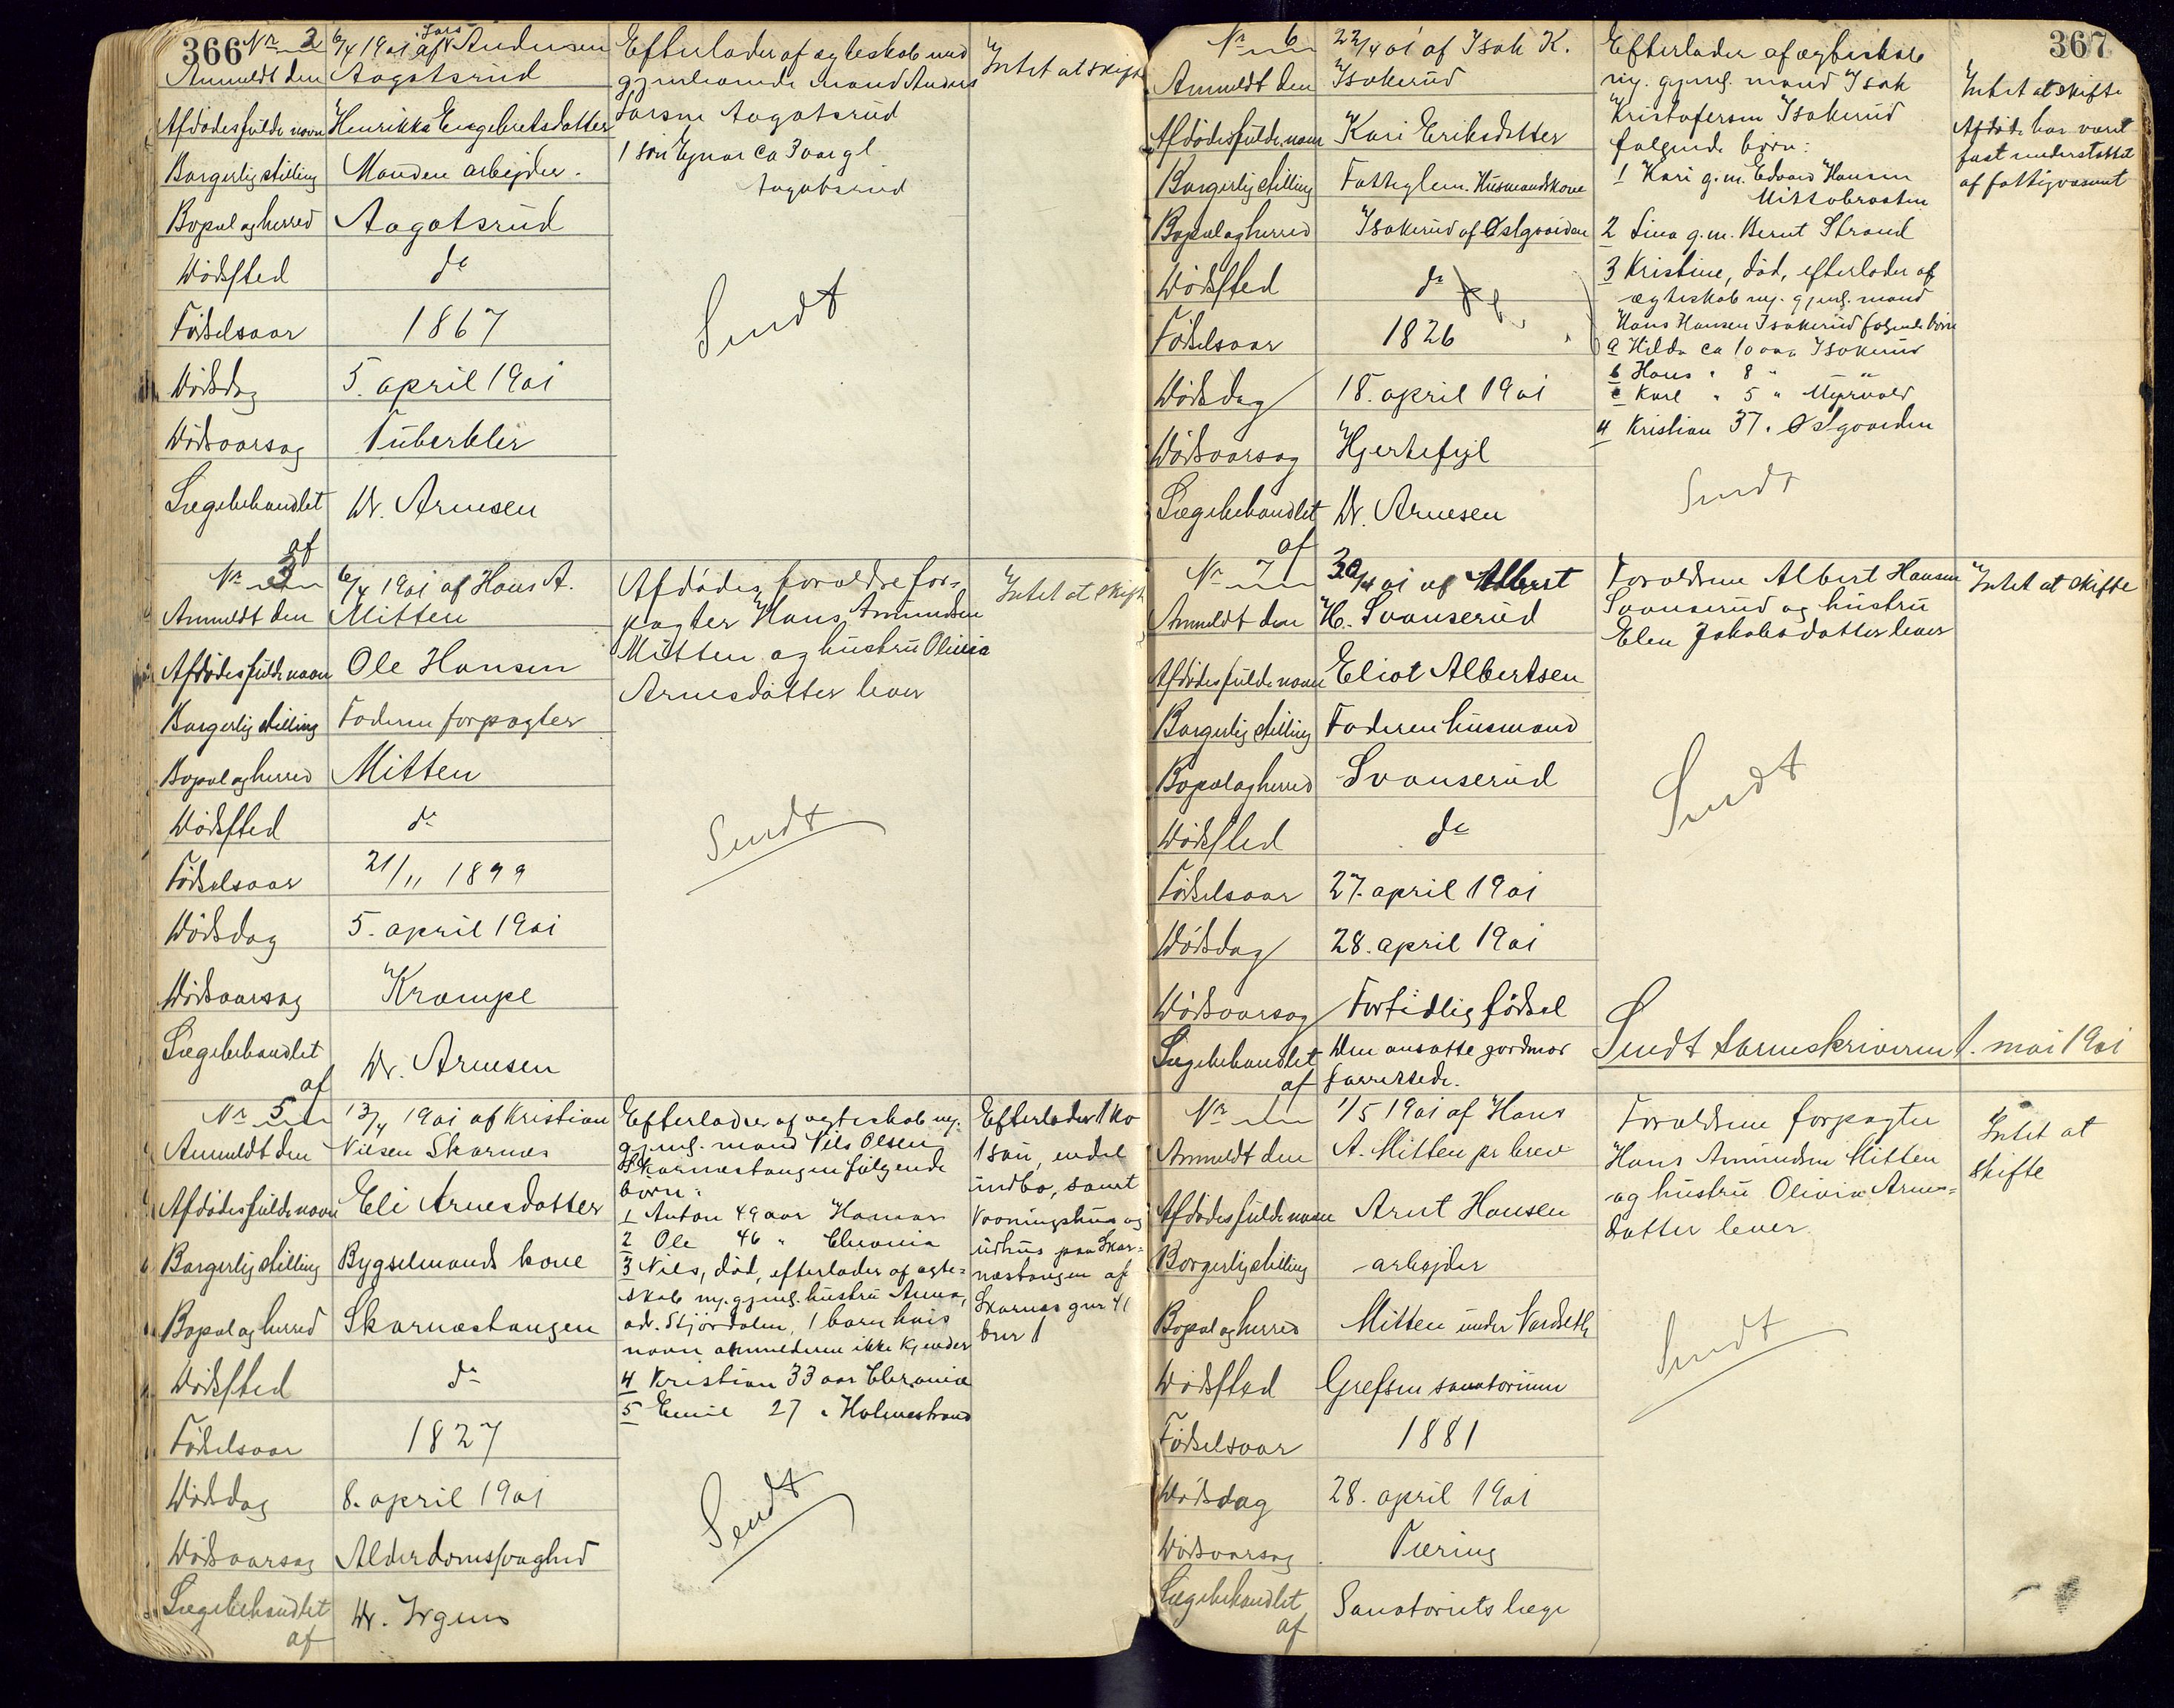 366
Nr 2
6/4 1901 af Lars Andersen
Anmeldt den Aagotsrud
Afdødes fulde navn Henrikka Engebretsdatter
Borgerlig stilling Manden arbejder.
Bopæl og herred Aagotsrud
Dødssted do
Fødselsaar 1867
Dødsdag 5. april 1901
Dødsaarsag Tuberkler
Lægebehandlet af Dr. Arnesen
Efterlader af ægteskab med
gjenlevende mand Anders
Larsen Aagotsrud
1 søn Ejnar ca 3 aar gl.
Aagotsrud
Sendt
Intet at skifte
Nr 3
6/4 1901 af Hans A.
Anmeldt den Mitten
Afdødes fulde navn Ole Hansen
Borgerlig stilling Faderen forpagter
Bopæl og herred Mitten
Dødssted do
Fødselsaar 21/11 1899
Dødsdag 5. april 1901
Dødsaarsag Krampe
Lægebehandlet af Dr. Arnesen
Afdødes forældre for-
pagter Hans Amundsen
Mitten og hustru Olivia
Arnesdatter lever
Sendt
Intet at skifte
Nr 5
13/4 1901 af Kristian
Anmeldt den Nilsen Skarnæs
Afdødes fulde navn Eli Arnesdatter
Borgerlig stilling Bygselmands kone
Bopæl og herred Skarnæstangen
Dødssted do
Fødselsaar 1827
Dødsdag 8. april 1901
Dødsaarsag Alderdomssvaghed
Lægebehandlet af Dr. Irgens
Efterlader af ægteskab m.
gjenl. mand Nils Olsen
Skarnæstangen følgende
børn:
1 Anton 49 aar Hamar
2 Ole 46 " Chrania
3 Nils, død, efterlader af ægte-
skab m. gjenl. hustru Anna,
adr. Stjørdalen, 1 barn hvis
navn anmelderen ikke kjender
4 Kristian 33 aar Chrania
5 Emil 27 " Holmestrand
Sendt
Efterlader 1 ko
1 sau, endel
indbo, samt
Vaaningshus og
udhus paa Skar-
næstangen af
Skarnæs gnr 41
bnr 1
367
Nr 6
22/4 01 af Isak K.
Anmeldt den Isakerud
Afdødes fulde navn Kari Eriksdatter
Borgerlig stilling Fattiglem. Husmandskone
Bopæl og herred Isakerud af Østgaarden
Dødssted do
Fødselsaar 1826
Dødsdag 18. april 1901
Dødsaarsag Hjertefejl
Lægebehandlet af Dr. Arnesen
Efterlader af ægteskab
m. gjenl. mand Isak
Kristofersen Isakerud
følgende børn:
1 Kari g.m. Edvard Hansen
2 Lina g.m. Bernt Strand
3 Kristine, død, efterlader af
ægteskab m. gjenl. mand
Hans Hansen Isakerud følgende børn
a Hilda ca 10 aar Isakerud
b Hans " 8 " "
c Karl " 5 " Myrvold
4 Kristian 37 " Østgaarden
Sendt
Intet at skifte
Afdøde har været
fast understøttet
af fattigvæsenet
Nr 7
30/4 01 af Albert
Anmeldt den H. Svanserud
Afdødes fulde navn Eliot Albertsen
Borgerlig stilling Faderen husmand
Bopæl og herred Svanserud
Dødssted do
Fødselsaar 27. april 1901
Dødsdag 28. april 1901
Dødsaarsag Fortidlig fødsel
Lægebehandlet af Den ansatte jordmor
Forældrene Albert Hansen
Svanserud og hustru
Elen Jakobsdatter lever
Sendt
Intet at skifte
Sendt Sorenskriveren 1. mai 1901
Nr 1
1/5 1901 af Hans
Anmeldt den A. Mitten pr brev
Afdødes fulde navn Arnt Hansen
Borgerlig stilling arbejder
Bopæl og herred Mitten under Vardseth
Dødssted Grefsen sanatorium
Fødselsaar 1881
Dødsdag 28. april 1901
Dødsaarsag Tæring
Lægebehandlet af Sanatoriets læge
Forældrene forpagter
Hans Amundsen Mitten
og hustru Olivia Arnes-
datter lever.
Sendt
Intet at
skifte